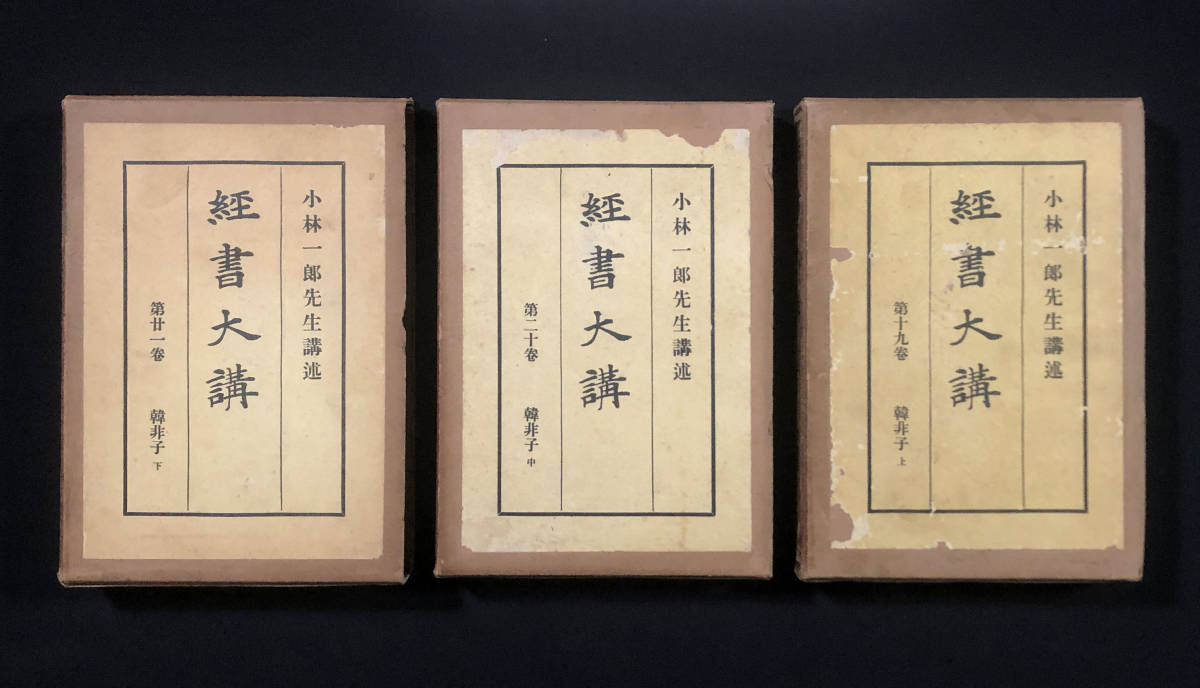 小林一郎先生講述
經書大講
第十九卷 韓非子 上
小林一郎先生講述
經書大講
第二十卷 韓非子 中
小林一郎先生講述
經書大講
第廿一卷 韓非子 下